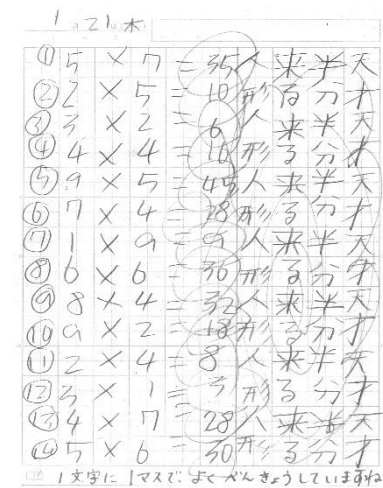 1月21(木)
① 5 × 7 = 35 人 来 半 天
② 2 × 5 = 10 形 る 分 才
③ 3 × 2 = 6 人 来 半 天
④ 4 × 4 = 16 形 る 分 才
⑤ 9 × 5 = 45 人 来 半 天
⑥ 7 × 4 = 28 形 る 分 才
⑦ 1 × 9 = 9 人 来 半 天
⑧ 6 × 6 = 36 形 る 分 才
⑨ 8 × 4 = 32 人 来 半 天
⑩ 9 × 2 = 18 形 る 分 才
⑪ 2 × 4 = 8 人 来 半 天
⑫ 3 × 1 = 3 形 る 分 才
⑬ 4 × 7 = 28 人 来 半 天
⑭ 5 × 6 = 30 形 る 分 才
1文字に1マスで。よくべんきょうしていますね